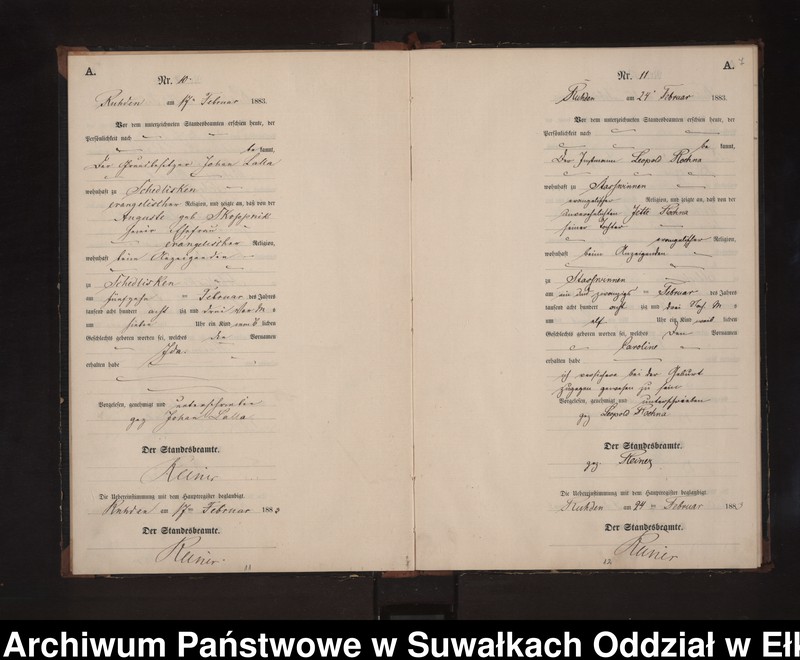 A.
Nr. 10.
Ruhden am 17 Februar 1883.
Vor dem unterzeichneten Standesbeamten erschien heute, der
Persönlichkeit nach
be kannt,
Der Grundbesitzer Johan Lalla
wohnhaft zu Schedlisken
evangelischer Religion, und zeigte an, daß von der
Auguste geb Skoppnik
seiner Ehefrau
evangelischer Religion,
wohnhaft beim Anzeigenden
zu Schedlisken
am fünfzehn Februar des Jahres
tausend acht hundert acht zig und drei
um sieben Uhr ein Kind lichen
Geschlechts geboren worden sei, welches den Vornamen
Ida
erhalten habe
Vorgelesen, genehmigt und unterschrieben
gez Johan Lalla
Der Standesbeamte.
Reiner
Die Uebereinstimmung mit dem Hauptregister beglaubigt.
Ruhden am 17 Februar 1883
Der Standesbeamte.
Reiner
11
A. 7
Nr. 11
Ruhden am 24 Februar 1883.
Vor dem unterzeichneten Standesbeamten erschien heute, der
Persönlichkeit nach
be kannt,
Der Instmann Leopold Kochna
wohnhaft zu Stasswinnen
evangelischer Religion, und zeigte an, daß von der
unverehelichten Jette Kochna
seiner Tochter
evangelischer Religion,
wohnhaft beim Anzeigenden
zu Stasswinnen
am ein und zwanzigs Februar des Jahres
tausend acht hundert acht zig und drei
um elf Uhr ein Kind weib lichen
Geschlechts geboren worden sei, welches den Vornamen
Caroline
erhalten habe
ich versichere bei der Geburt
zugegen gewesen zu sein
Vorgelesen, genehmigt und unterschrieben
gez Leopold Kochna
Der Standesbeamte.
gez. Reiner
Die Uebereinstimmung mit dem Hauptregister beglaubigt.
Ruhden am 24 Februar 1883
Der Standesbeamte.
Reiner
12
Archiwum Państwowe w Suwałkach Oddział w Ełk